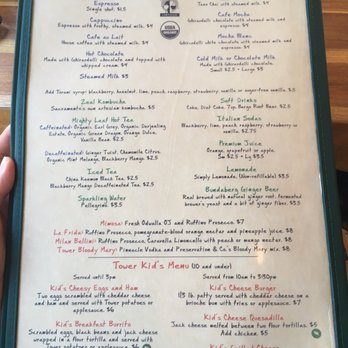 Espresso
Single shot. $1.5
Cappuccino
Espresso with frothy, steamed milk. $4
Cafe au Lait
House coffee with steamed milk. $4
Hot Chocolate
Made with Ghirardelli chocolate and topped with
whipped cream. $4
Steamed Milk $3
USDA
ORGANIC
Tazo Chai with steamed milk. $4
Cafe Mocha
Ghirardelli chocolate with steamed milk and
espresso. $4
Mocha Blanc
Ghirardelli white chocolate with steamed milk and
espresso. $4
Cold Milk or Chocolate Milk
Made with Ghirardelli chocolate.
Small $2.5 - Large $3.5
Add Torani syrup: blackberry, hazelnut, lime, peach, raspberry, strawberry, vanilla or sugar-free vanilla. $.5
Zeal Kombucha
Sacramento's own artesian kombucha. $5
Mighty Leaf Hot Tea
Caffeinated: Organic Earl Grey, Organic Darjeeling
Estate, Organic Green Dragon, Orange Dulce,
Vanilla Bean. $2.5
Decaffeinated: Ginger Twist, Chamomile Citrus,
Organic Mint Melange, Blackberry Mango. $2.5
Iced Tea
China Keemun Black Tea. $2.5
Blackberry Mango Decaffeinated Tea. $2.5
Sparkling Water
Pellegrino. $3.5
Soft Drinks
Coke, Diet Coke, 7up, Bargs Root Beer. $2.5
Italian Sodas
Blackberry, lime, peach, raspberry, strawberry or
vanilla. $2.75
Premium Juice
Orange, grapefruit or apple.
Sm $2.5 - Lg $3.5
Lemonade
Simply Lemonade. (Non-refillable) $3.5
Bundaberg Ginger Beer
Real brewed with natural ginger root, fermented
brewer's yeast and a bit of ginger fiber. $3.5
Mimosa: Fresh Odwalla OJ and Ruffino Prosecco. $7
La Frida: Ruffino Prosecco, pomegranate-blood orange nectar and pineapple juice. $8
Milan Bellini: Ruffino Prosecco, Caravella Limoncello with peach or mango nectar. $8
Tower Bloody Mary: Pinnacle Vodka and Preservation & Co's Bloody Mary mix. $8
Tower Kid's Menu (10 and under)
Served until 3pm
Kid's Cheesy Eggs and Ham
Two eggs scrambled with cheddar cheese
and ham and served with Tower potatoes
or applesauce. $6
Kid's Breakfast Burrito
Scrambled eggs, black beans and jack cheese
wrapped in a flour tortilla and served with
Tower potatoes or applesauce. $6
Served from 10am to 5:30pm
Kid's Cheese Burger
1/3 lb. patty served with cheddar cheese on a
brioche bun with fries or applesauce. $7
Kid's Cheese Quesadilla
Jack cheese melted between two flour tortillas. $5
Add chicken. $
Kid's Grilled Cheese